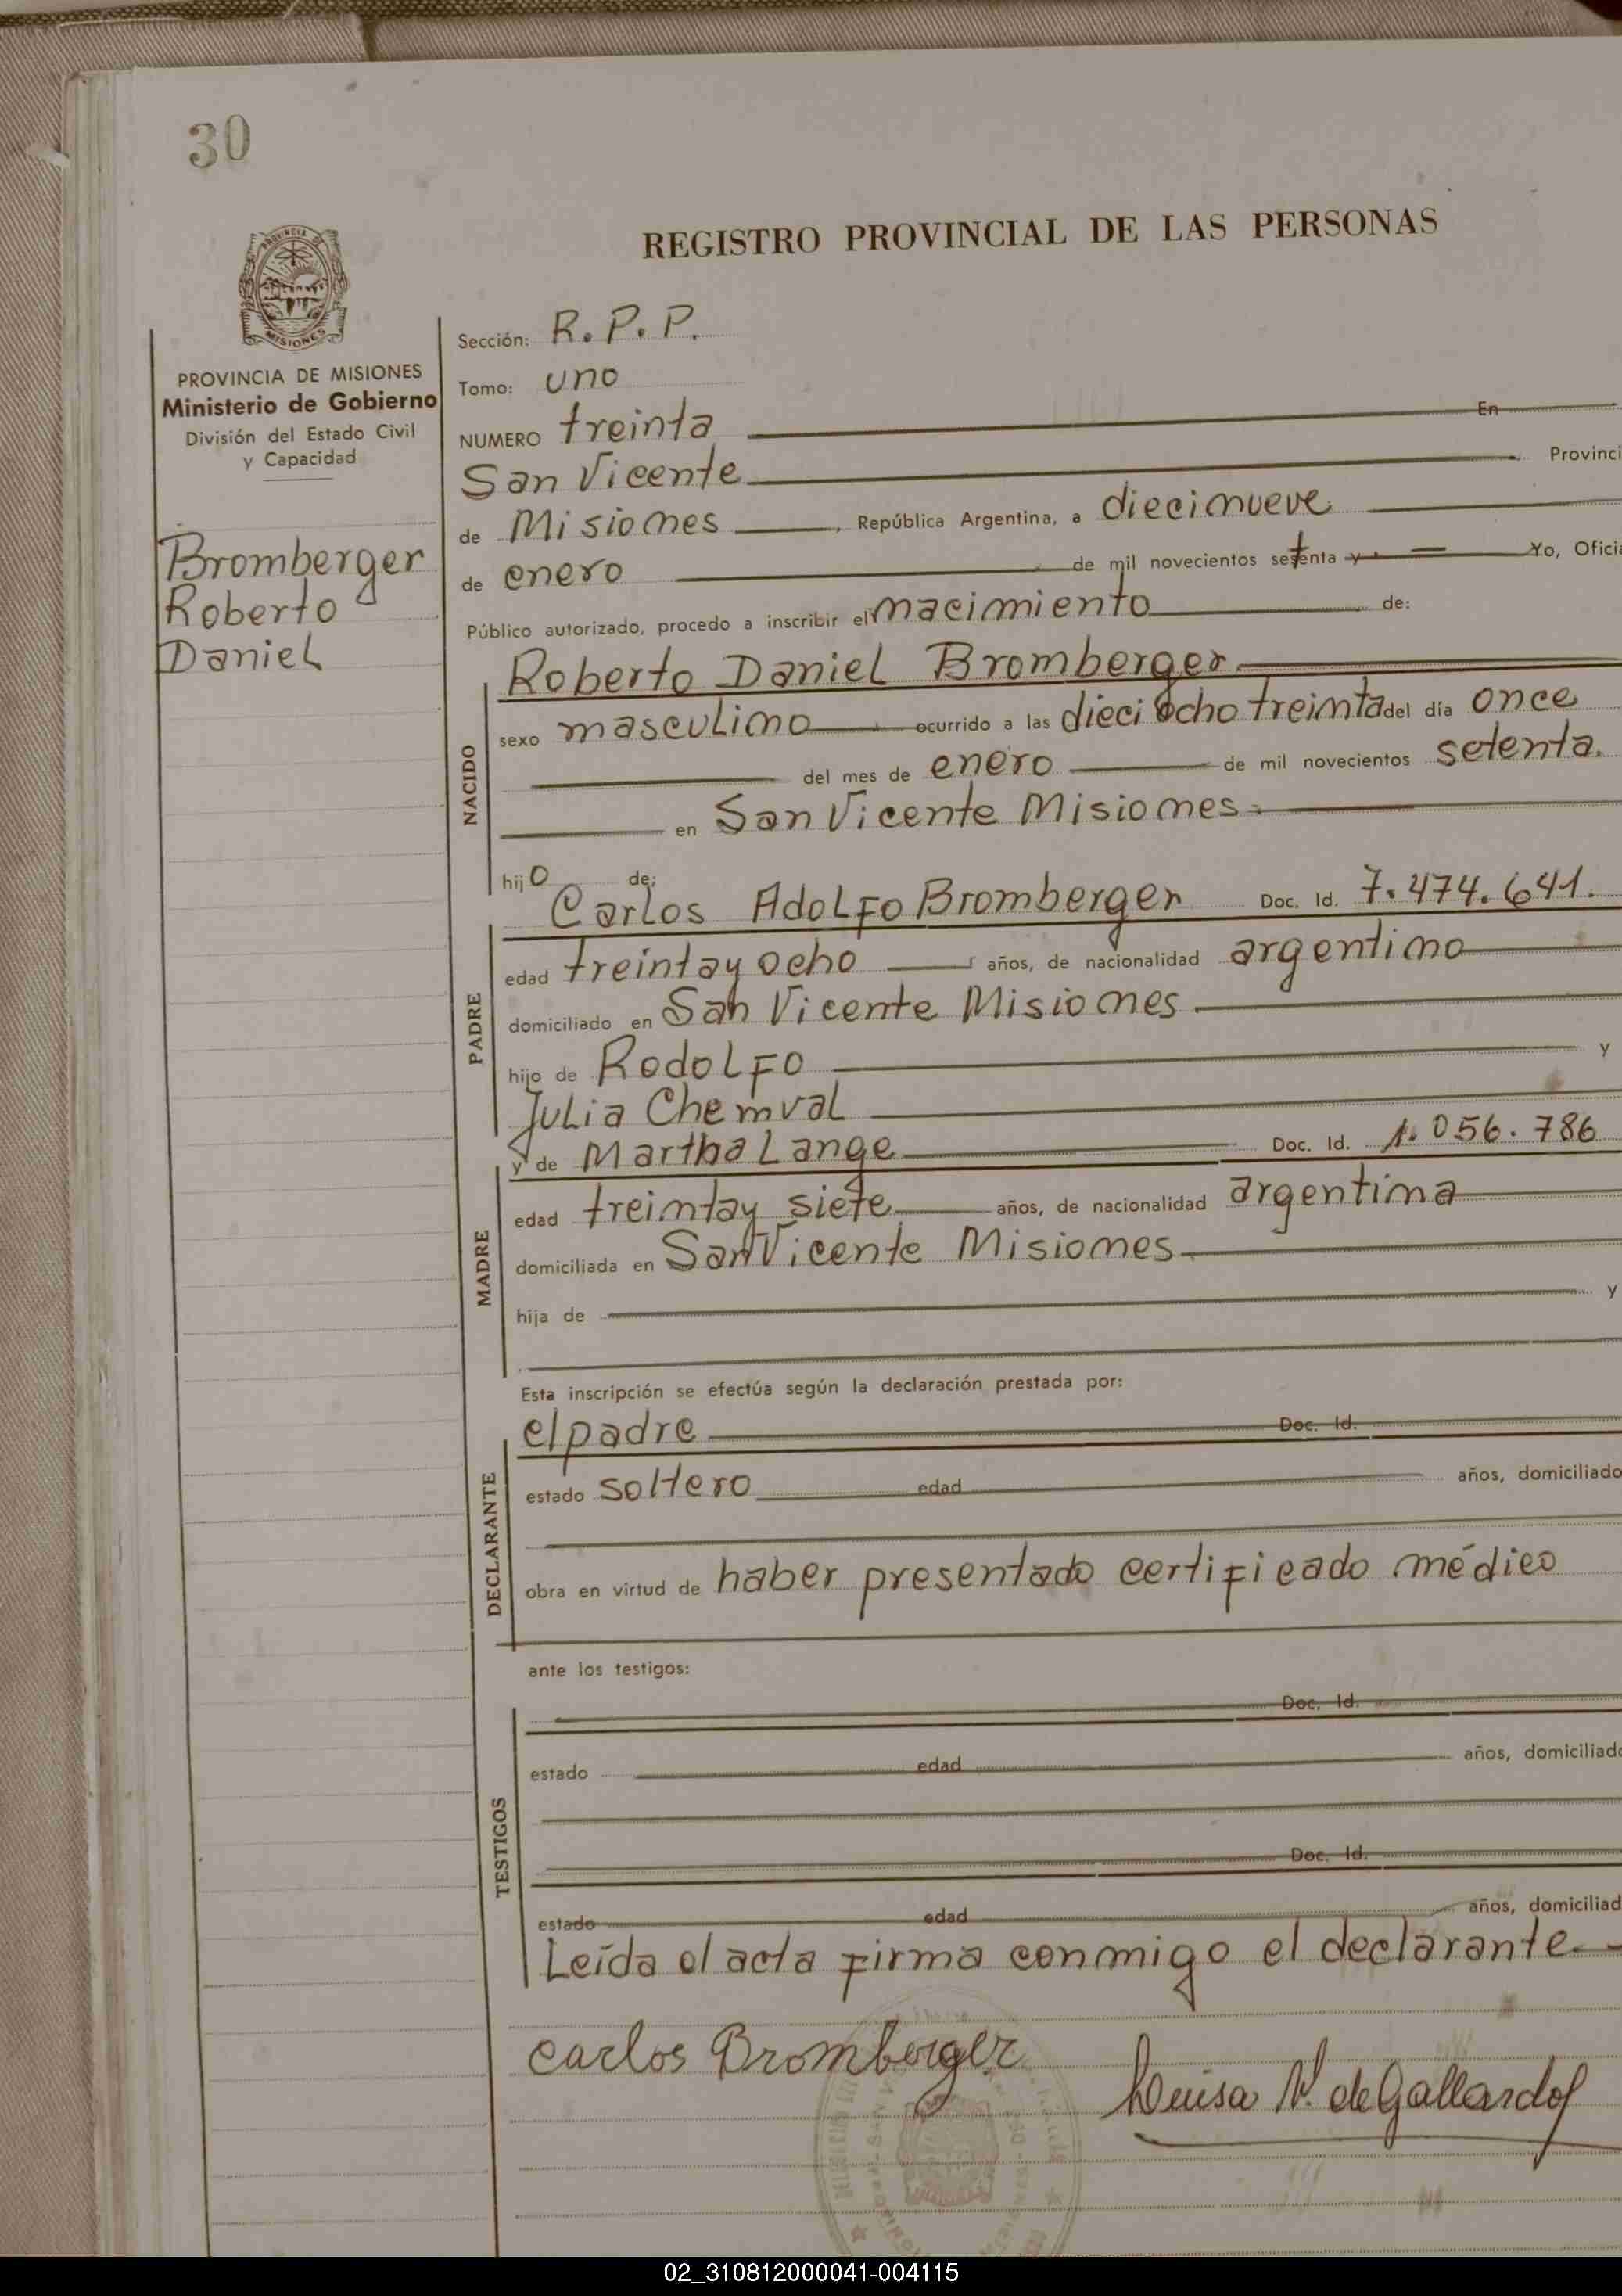 30
REGISTRO PROVINCIAL DE LAS PERSONAS
PROVINCIA DE MISIONES
Ministerio de Gobierno
División del Estado Civil
y Capacidad
Bromberger
Roberto
Daniel
Sección: R.P.P.
Tomo: uno
NUMERO treinta En
San Vicente Provinci
de Misiones , República Argentina, a diecinueve
de enero de mil novecientos setenta y Yo, Oficia
Público autorizado, procedo a inscribir el nacimiento de:
NACIDO
Roberto Daniel Bromberger
sexo masculino ocurrido a las dieciocho treinta del día once
del mes de enero de mil novecientos setenta.
en San Vicente Misiones
hijo de:
PADRE
Carlos Adolfo Bromberger Doc. Id. 7.474.641.
edad treinta y ocho años, de nacionalidad argentino
domiciliado en San Vicente Misiones
hijo de Rodolfo y
Julia Chemval
MADRE
y de Martha Lange Doc. Id. 1.056.786
edad treinta y siete años, de nacionalidad argentina
domiciliada en San Vicente Misiones
hija de y
Esta inscripción se efectúa según la declaración prestada por:
DECLARANTE
el padre Doc. Id.
estado soltero edad años, domiciliado
obra en virtud de haber presentado certificado médico
ante los testigos:
TESTIGOS
Doc. Id.
estado edad años, domiciliado
Doc. Id.
estado edad años, domiciliad
Leída el acta firma conmigo el declarante
Carlos Bromberger
Luisa V. de Gallardo
02_310812000041-004115